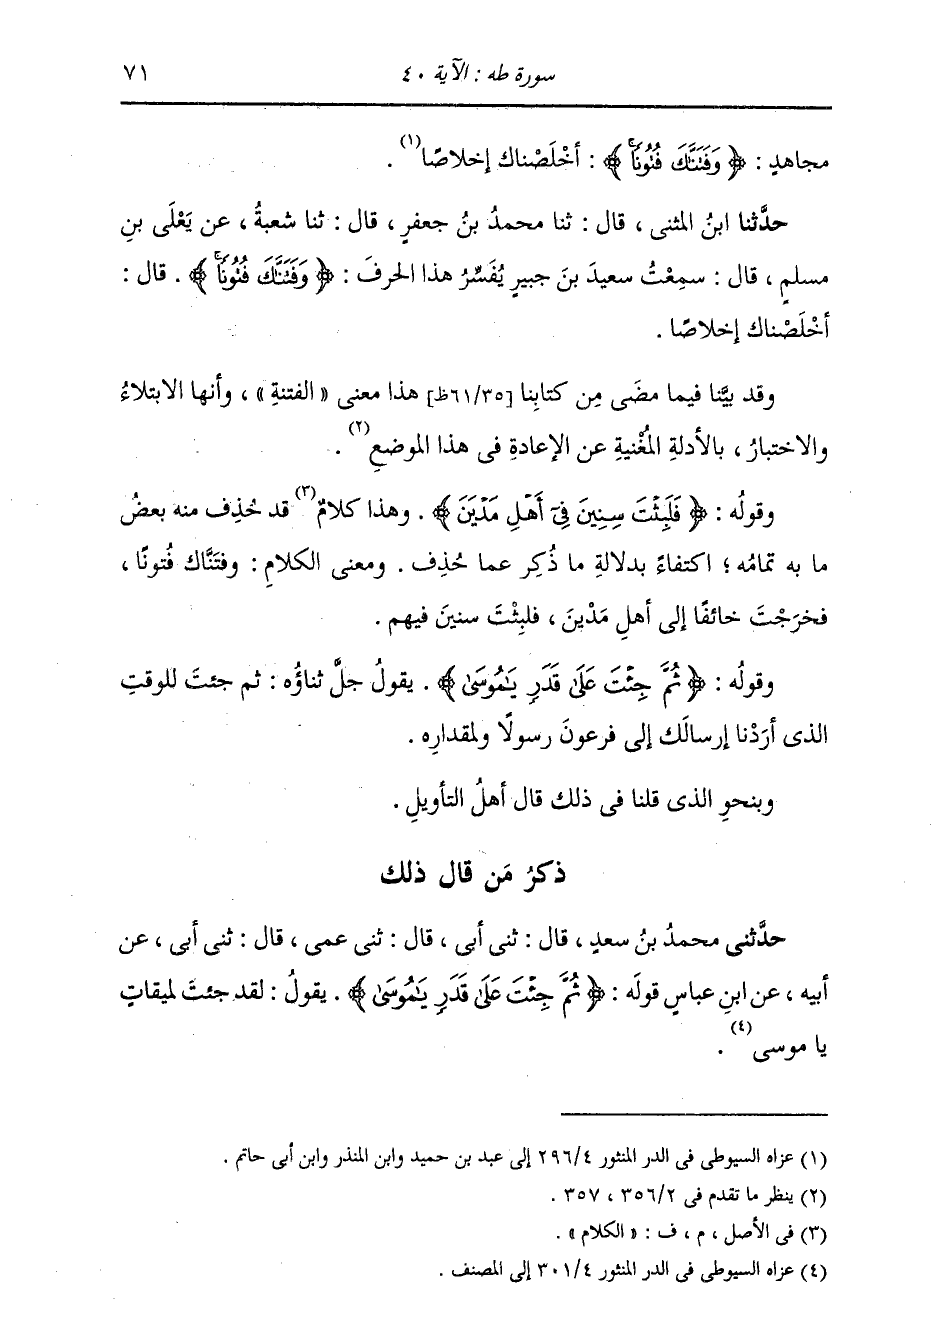 سورة طه : الآية ٤٠ ٧١
مجاهدٍ : ﴿ وَفَتَنَّكَ فُتُونًا ﴾ : أخْلَصْناك إخلاصًا(١) .
حدَّثنا ابنُ المثنى ، قال : ثنا محمدُ بنُ جعفرٍ ، قال : ثنا شعبةُ ، عن يَعْلَى بنِ
مسلمٍ ، قال : سمِعْتُ سعيدَ بنَ جبيرٍ يُفَسِّرُ هذا الحرفَ : ﴿ وَفَتَنَّكَ فُتُونًا ﴾ . قال :
أخْلَصْناك إخلاصًا .
وقد بيَّنا فيما مضَى مِن كتابِنا [٦١/٣٥ظ] هذا معنى « الفتنةِ » ، وأنها الابتلاءُ
والاختبارُ ، بالأدلةِ المُغْنيةِ عن الإعادةِ فى هذا الموضعِ(٢) .
وقولُه : ﴿ فَلَبِثْتَ سِنِينَ فِىٓ أَهْلِ مَدْيَنَ ﴾ . وهذا كلامٌ(٣) قد حُذِف منه بعضُ
ما به تمامُه ؛ اكتفاءً بدلالةِ ما ذُكِر عما حُذِف . ومعنى الكلامِ : وفتَنَّاك فُتونًا ،
فخرَجْتَ خائفًا إلى أهلِ مَدْينَ ، فلبِثْتَ سنينَ فيهم .
وقولُه : ﴿ ثُمَّ جِئْتَ عَلَىٰ قَدَرٍ يَٰمُوسَىٰ ﴾ . يقولُ جلَّ ثناؤُه : ثم جئتَ للوقتِ
الذى أرَدْنا إرسالَك إلى فرعونَ رسولًا ولمقدارِه .
وبنحوِ الذى قلنا فى ذلك قال أهلُ التأويلِ .
ذكرُ مَن قال ذلك
حدَّثنى محمدُ بنُ سعدٍ ، قال : ثنى أبى ، قال : ثنى عمى ، قال : ثنى أبى ، عن
أبيه ، عن ابنِ عباسٍ قولَه : ﴿ ثُمَّ جِئْتَ عَلَىٰ قَدَرٍ يَٰمُوسَىٰ ﴾ . يقولُ : لقد جئتَ لميقاتٍ
يا موسى(٤) .
(١) عزاه السيوطى فى الدر المنثور ٢٩٦/٤ إلى عبد بن حميد وابن المنذر وابن أبى حاتم .
(٢) ينظر ما تقدم فى ٣٥٦/٢ ، ٣٥٧ .
(٣) فى الأصل ، م ، ف : « الكلام » .
(٤) عزاه السيوطى فى الدر المنثور ٣٠١/٤ إلى المصنف .